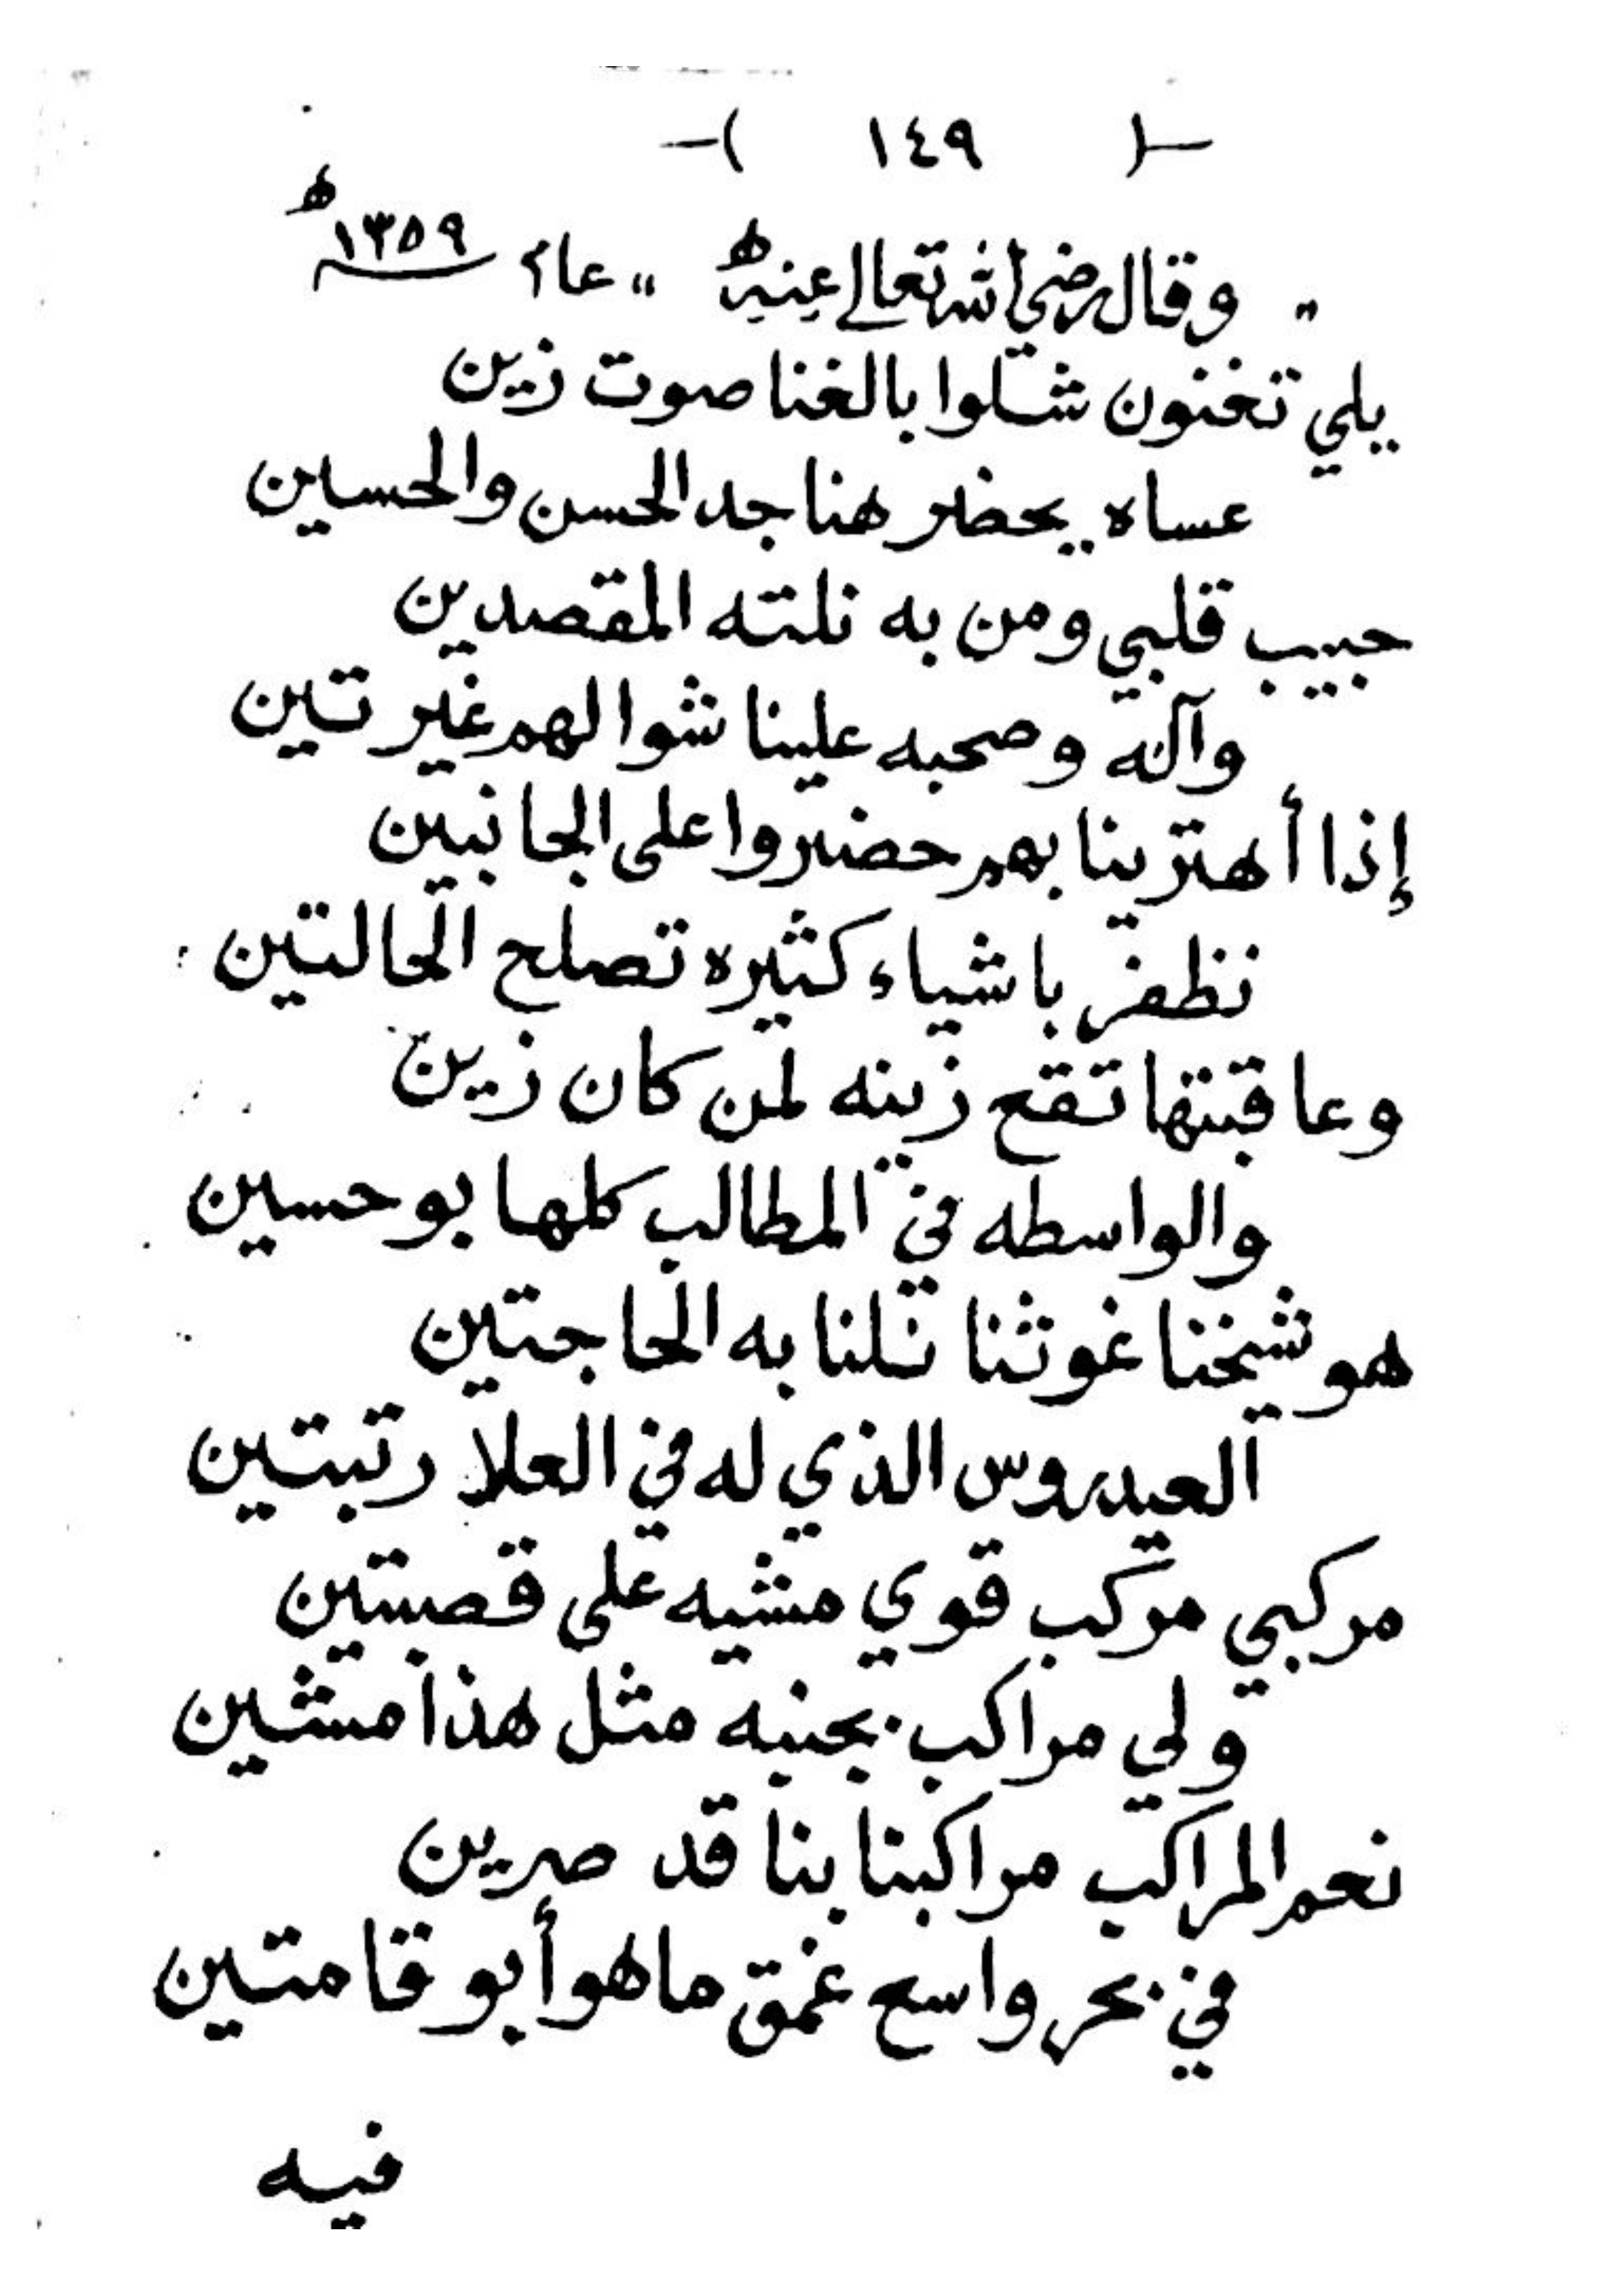 -( ١٤٩ )-
" وقال رضي الله تعالى عنه " عام ١٣٥٩ھ
يلي تغنون شلوا بالغنا صوت زين
عساه يحضر هنا جد الحسن والحسين
حبيب قلبي ومن به نلته المقصدين
وآله وصحبه علينا شوا لهم غير تين
إذا أهتزينا بهم حضروا على الجانبين
نظفر باشياء كثيره تصلح الحالتين
وعاقبتها تقع زينه لمن كان زين
والواسطه في المطالب كلها بو حسين
هو شيخنا غوثنا نلنا به الحاجتين
العيدروس الذي له في العلا رتبتين
مركبي مركب قوي مشيه على قصبتين
ولي مراكب بجنبه مثل هذا مشين
نعم المراكب مراكبنا بنا قد صرين
في بحر واسع غمق ما هو أبو قامتين
فيه